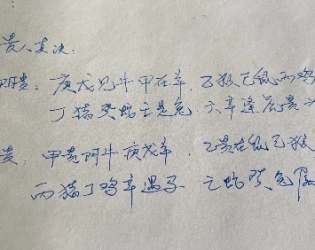 贵人真诀:
阳贵: 庚戊见牛甲在羊, 乙猴己鼠丙鸡
丁猪癸蛇壬是兔, 六辛逢虎贵
贵, 甲贵阴牛庚戊羊, 乙贵在鼠己猴
丙猪丁鸡辛遇 乙蛇癸兔属